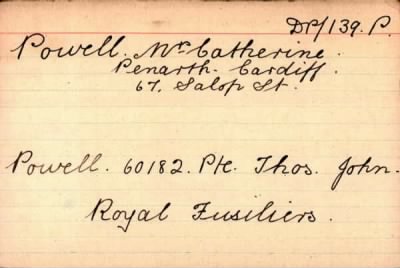 DP/139. P.
Powell. Mrs Catherine.
Penarth. Cardiff.
67. Salop St.
Powell. 60182. Pte. Thos. John.
Royal Fusiliers.